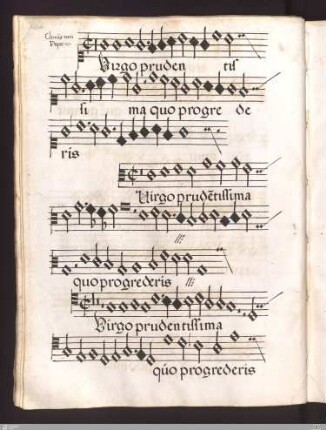 Virgo pruden tis
si ma quo progre de
ris
Virgo prudẽtissima
quo progrederis
Virgo prudentissima
quo progrederis